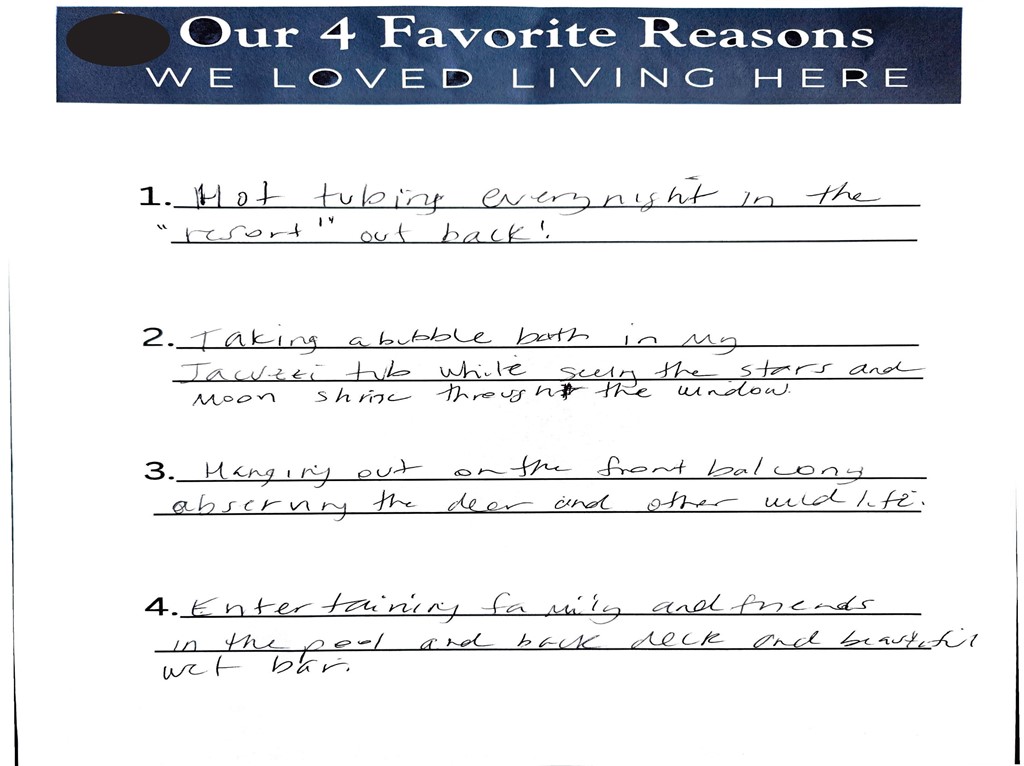 Our 4 Favorite Reasons
WE LOVED LIVING HERE
1. Hot tubing every night in the
"resort" out back!
2. Taking a bubble bath in my
Jacuzzi tub while seeing the stars and
Moon shine through the window.
3. Hanging out on the front balcony
observing the deer and other wild life.
4. Entertaining family and friends
in the pool and back deck and beautiful
wet bar.